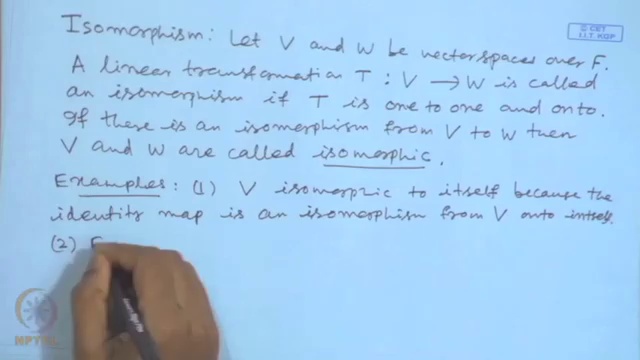 © CET
I.I.T. KGP
Isomorphism: Let V and W be vector spaces over F.
A linear transformation T : V → W is called
an isomorphism if T is one to one and onto.
If there is an isomorphism from V to W then
V and W are called isomorphic.
Examples: (1) V isomorphic to itself because the
identity map is an isomorphism from V onto intself.
(2) F
NPTEL